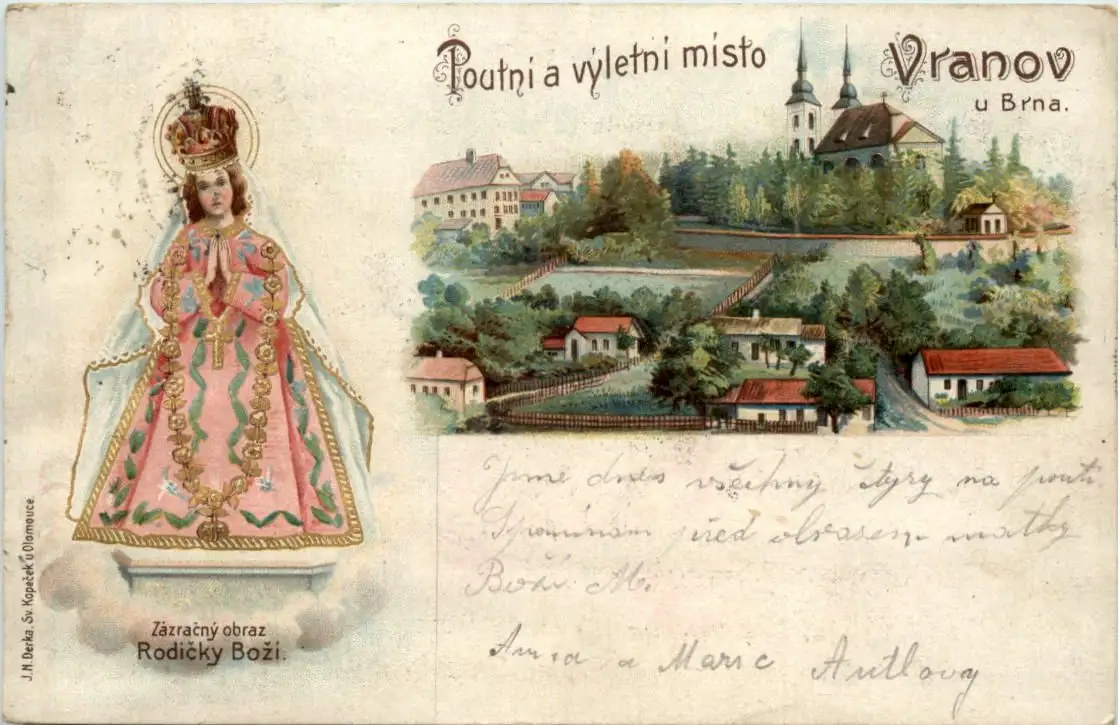 Poutní a výletní místo
Vranov
u Brna.
Jsme dnes všechny štyry na pouti
Spomínám před obrasem matky
Boží M.
Anna a Marie Antlovy
Zázračný obraz
Rodičky Boží.
J.N.Derka, Sv. Kopeček u Olomouce.